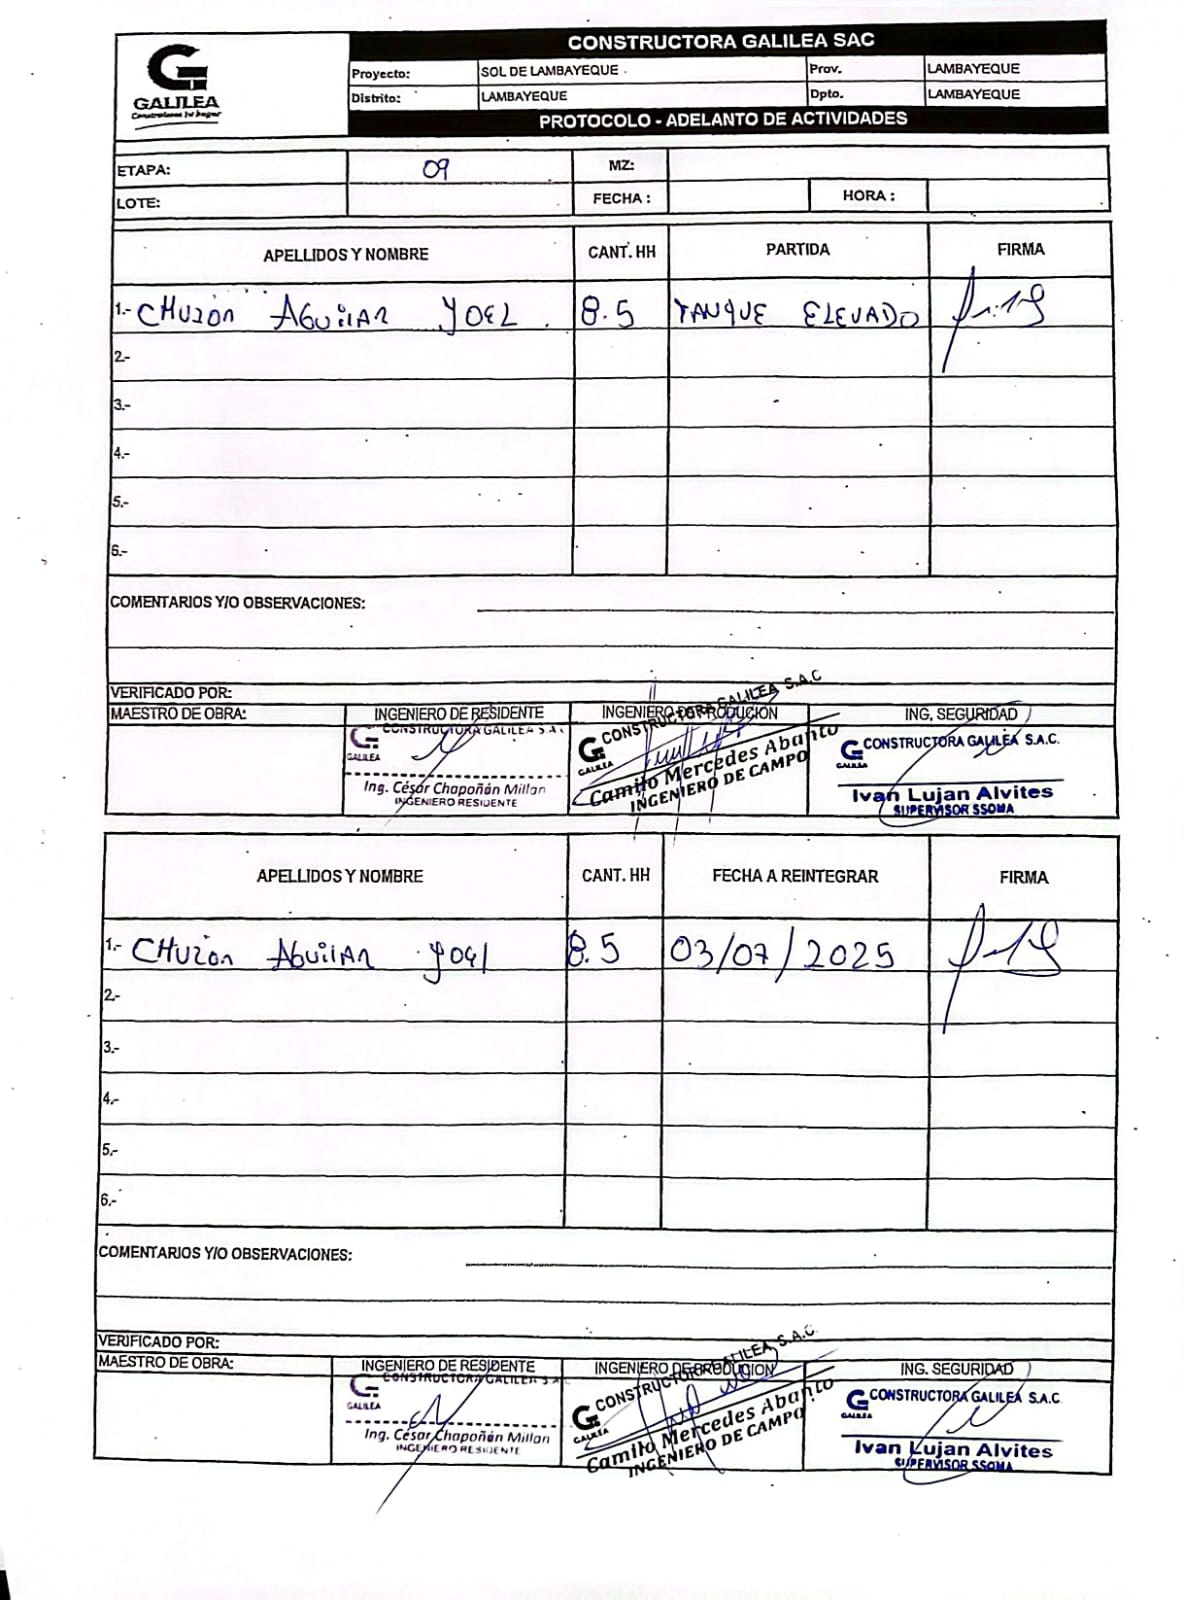 CONSTRUCTORA GALILEA SAC
GALILEA
Construimos tu hogar
Proyecto: SOL DE LAMBAYEQUE Prov. LAMBAYEQUE
Distrito: LAMBAYEQUE Dpto. LAMBAYEQUE
PROTOCOLO - ADELANTO DE ACTIVIDADES
ETAPA: 09 MZ:
LOTE: FECHA : HORA :
APELLIDOS Y NOMBRE CANT. HH PARTIDA FIRMA
1.- CHUZON AGUILAR YOEL 8.5 TANQUE ELEVADO
2.-
3.-
4.-
5.-
6.-
COMENTARIOS Y/O OBSERVACIONES:
VERIFICADO POR:
MAESTRO DE OBRA: INGENIERO DE RESIDENTE INGENIERO DE PRODUCION ING. SEGURIDAD
CONSTRUCTORA GALILEA S.A.C
GALILEA
Ing. César Chapoñán Millan
INGENIERO RESIDENTE
CONSTRUCTORA GALILEA S.A.C
GALILEA
Camilo Mercedes Abanto
INGENIERO DE CAMPO
CONSTRUCTORA GALILEA S.A.C.
GALILEA
Ivan Lujan Alvites
SUPERVISOR SSOMA
APELLIDOS Y NOMBRE CANT. HH FECHA A REINTEGRAR FIRMA
1.- CHUZON AGUILAR YOEL 8.5 03/07/2025
2.-
3.-
4.-
5.-
6.-
COMENTARIOS Y/O OBSERVACIONES:
VERIFICADO POR:
MAESTRO DE OBRA: INGENIERO DE RESIDENTE INGENIERO DE PRODUCION ING. SEGURIDAD
CONSTRUCTORA GALILEA S.A.
GALILEA
Ing. César Chapoñán Millan
INGENIERO RESIDENTE
CONSTRUCTORA GALILEA S.A.C.
GALILEA
Camilo Mercedes Abanto
INGENIERO DE CAMPO
CONSTRUCTORA GALILEA S.A.C
GALILEA
Ivan Lujan Alvites
SUPERVISOR SSOMA